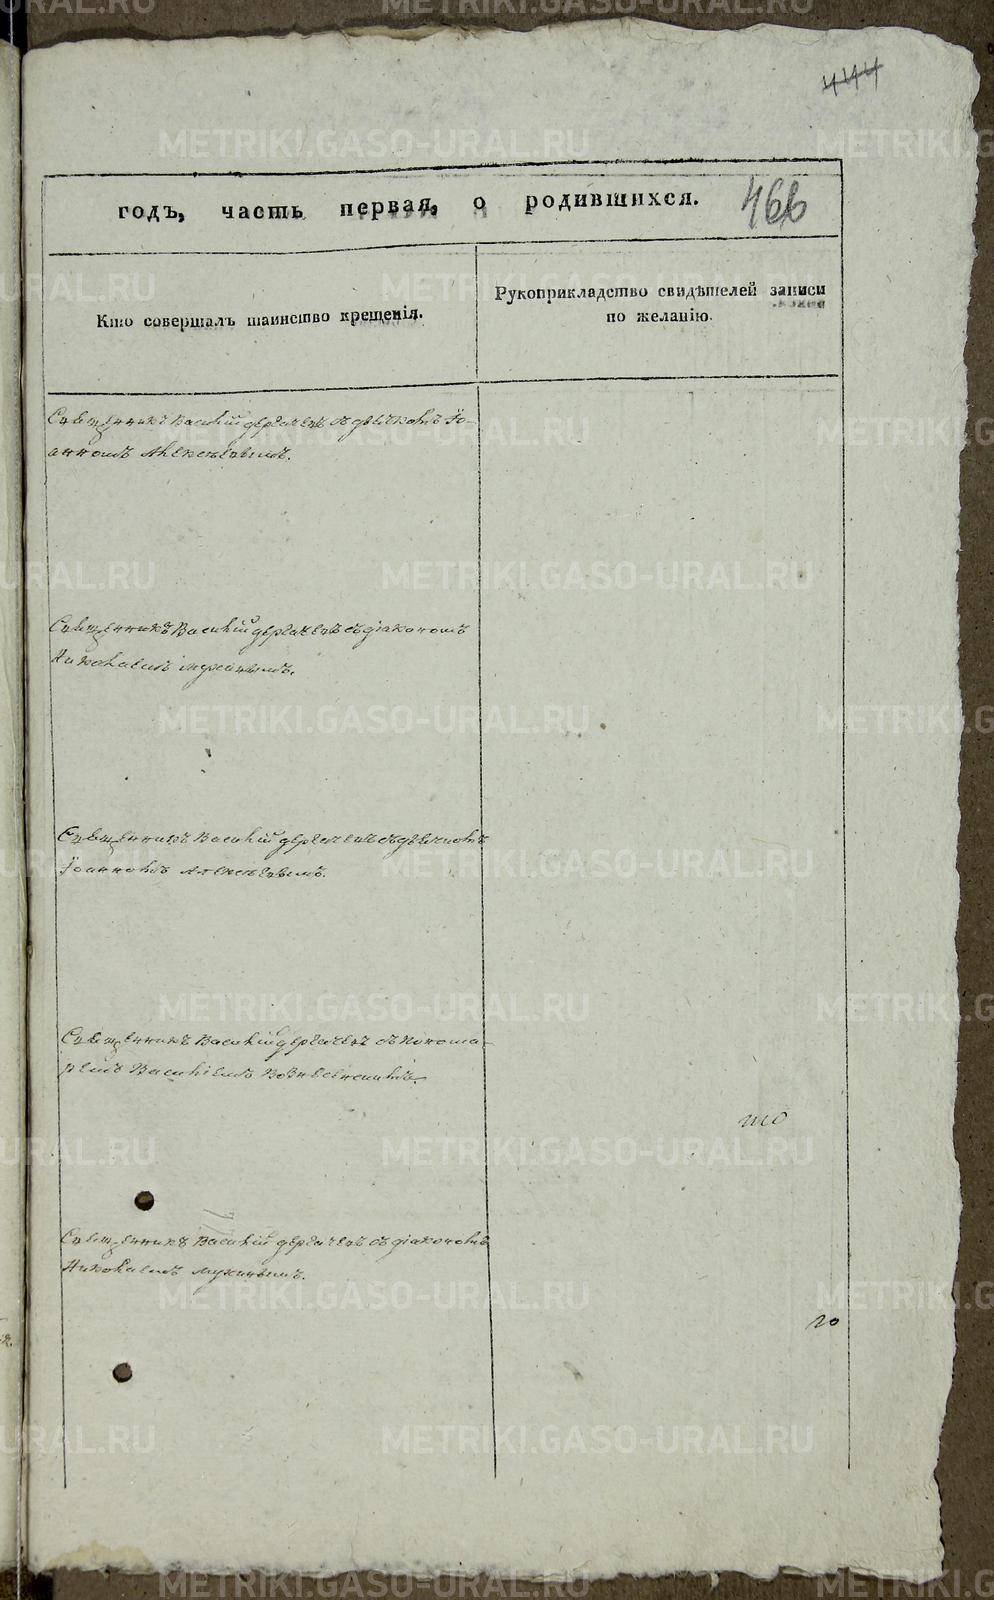 444
466
годъ, часть первая, о родившихся.
Кто совершалъ таинство крещенія.
Рукоприкладство свидѣтелей записи
по желанію.
Священникъ Василій Дергачевъ съ дьячкомъ Іо-
анномъ Алексѣевымъ.
Священникъ Василій Дергачевъ съ діакономъ
Николаемъ
Священникъ Василій Дергачевъ съ дьячкомъ
Іоанномъ Алексѣевымъ.
Священникъ Василій Дергачевъ съ Понома-
ремъ Василіемъ Вознесенскимъ.
то
Священникъ Василій Дергачевъ съ діакономъ
Николаемъ
го
METRIKI.GASO-URAL.RU